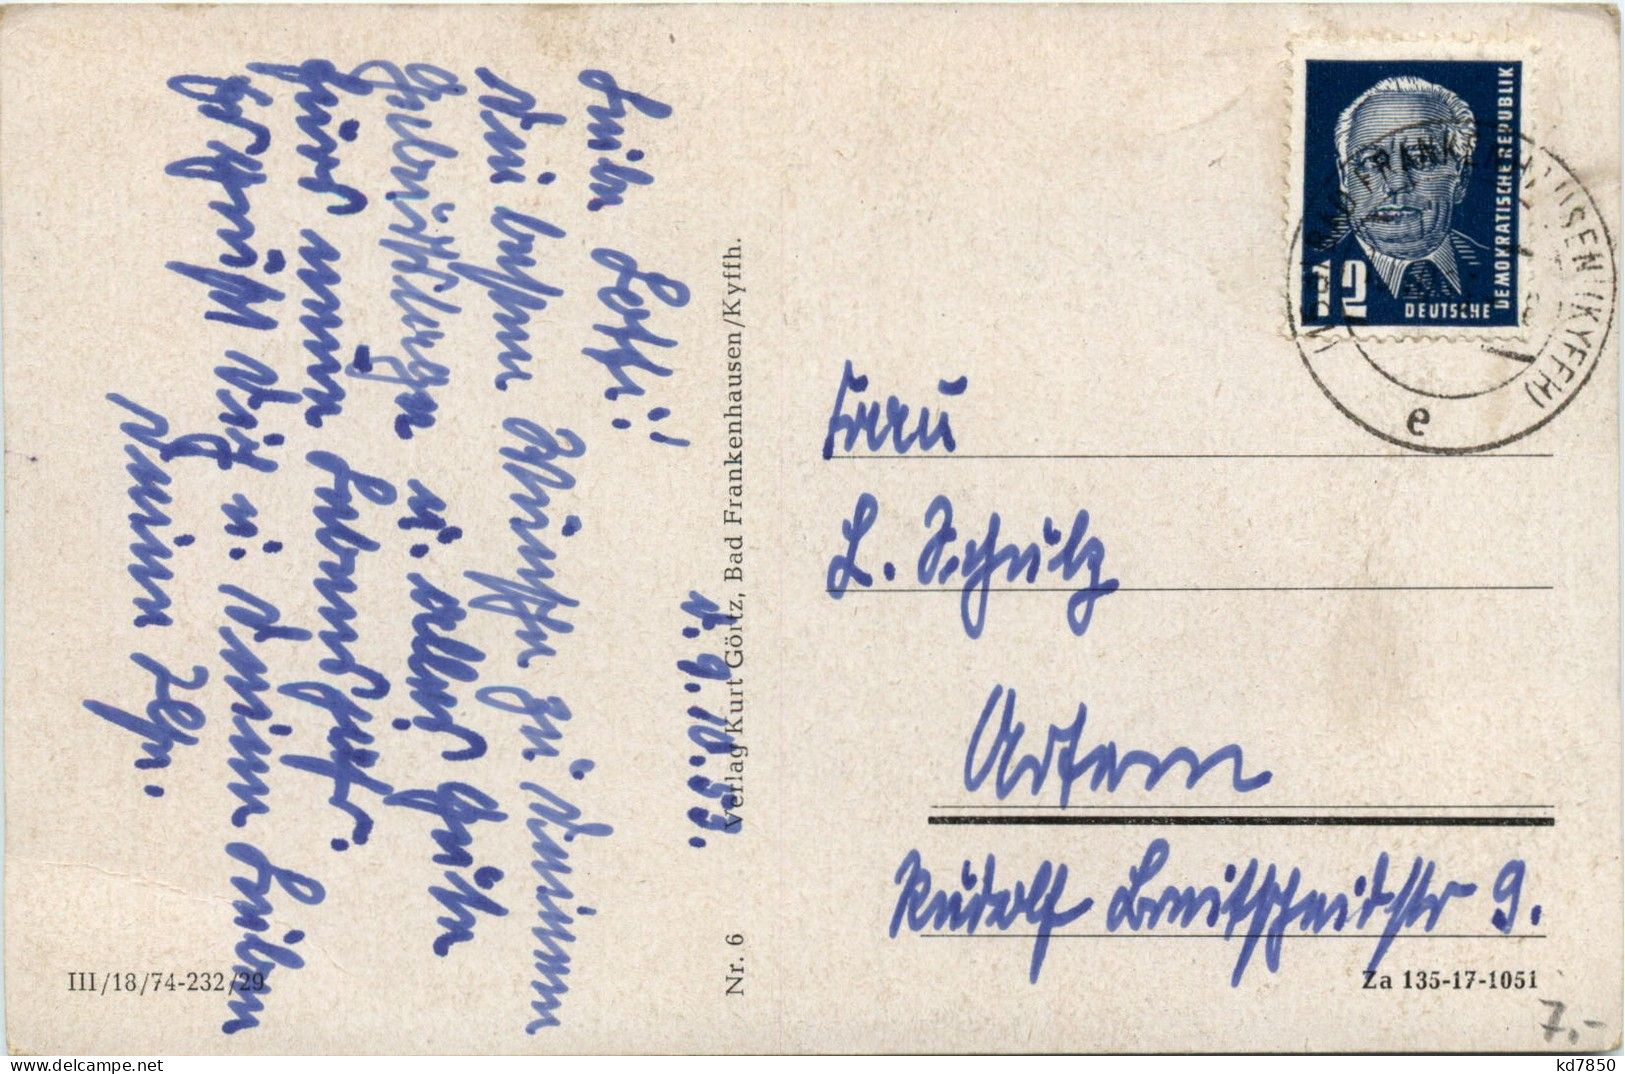 d. 9. 10. 53.
Liebe Lotti!
Die besten Wünsche zu Deinem
Geburtstage u. alles Gute
fürs neue Lebensjahr.
Es grüßt Dich u. Deine Lieben
Deine
Verlag Kurt Görtz, Bad Frankenhausen/Kyffh.
Nr. 6
III/18/74-232/29
DEUTSCHE
DEMOKRATISCHE REPUBLIK
12
BAD FRANKENHAUSEN (KYFFH)
e
Frau
L. Schulz
Artern
Rudolf Breitscheidstr 9.
Za 135-17-1051
7.-
kd7850